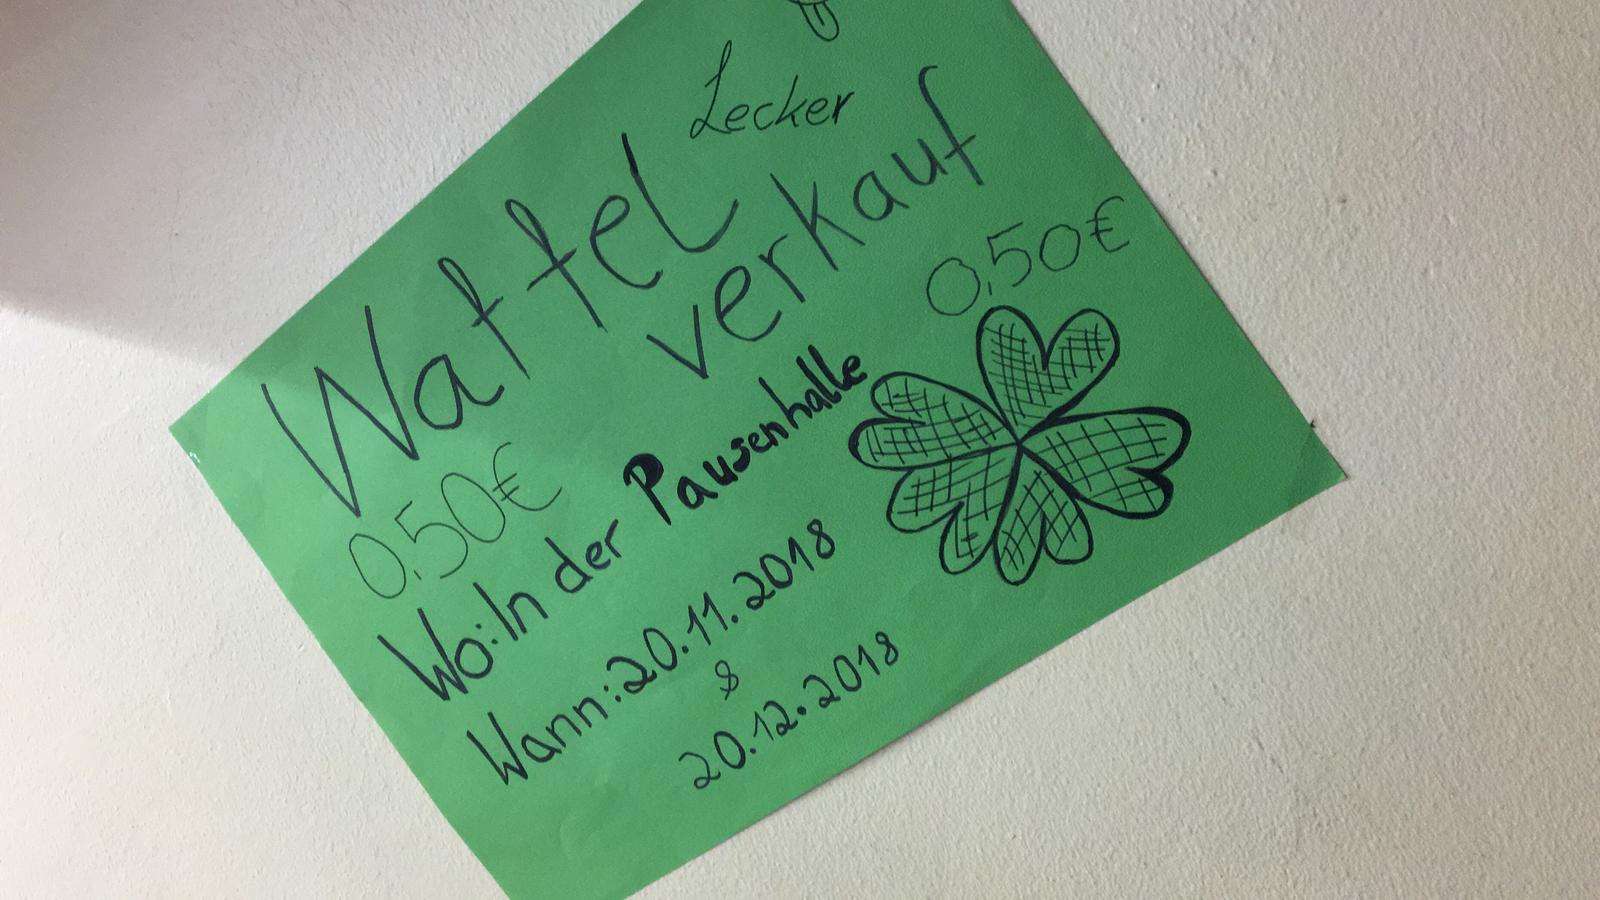 Lecker
Waffel
verkauf
0,50€
0,50€
Wo: In der Pausenhalle
Wann: 20.11.2018
&
20.12.2018